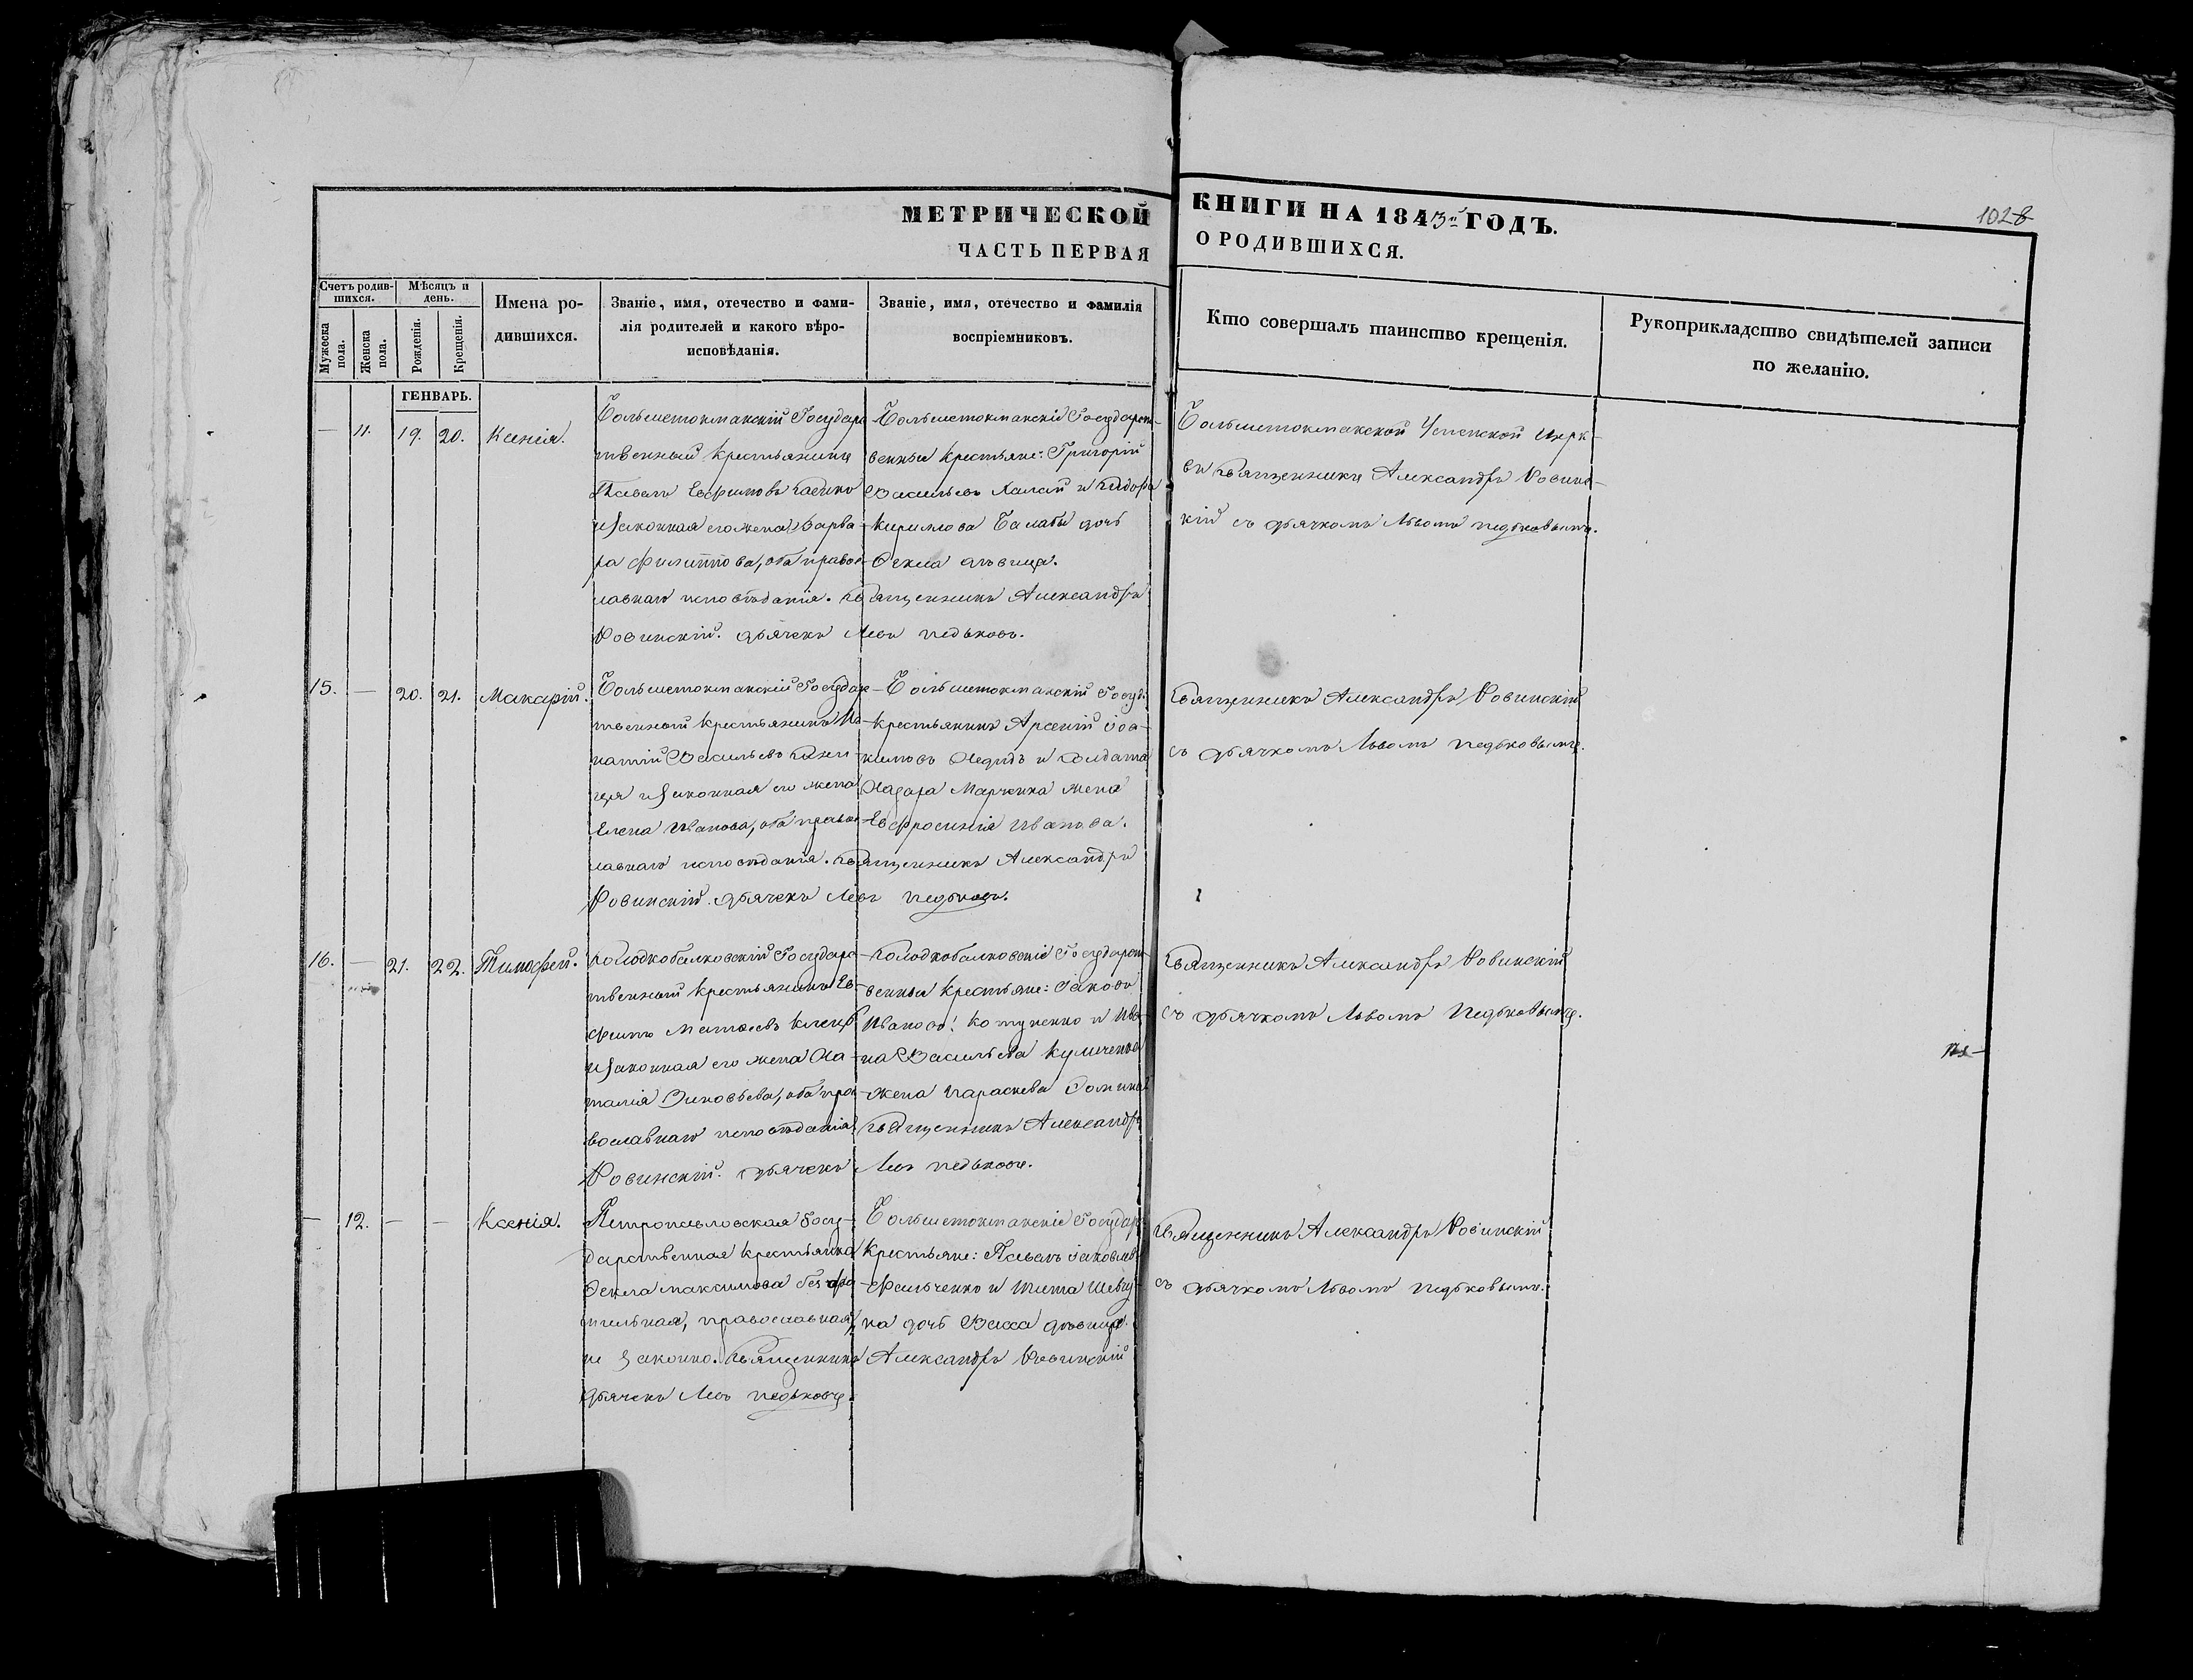 МЕТРИЧЕСКОЙ
КНИГИ НА 1843й ГОДЪ.
1028
ЧАСТЬ ПЕРВАЯ
О РОДИВШИХСЯ.
Счетъ родив-
шихся.
Мужеска пола.
Женска пола.
Мѣсяцъ и
день.
Рожденія.
Крещенія.
Имена ро-
дившихся.
Званіе, имя, отечество и фами-
лія родителей и какого вѣро-
исповѣданія.
Званіе, имя, отечество и фамилія
воспріемниковъ.
Кто совершалъ таинство крещенія.
Рукоприкладство свидѣтелей записи
по желанію.
ГЕНВАРЬ.
— 11. 19. 20. Ксенія.
Большетокмакскій Государс
твенный крестьянинъ
Павелъ Евфимовъ
и законная его жена Варва
ра Филиппова, оба правос
лавнаго исповѣданія. Священникъ Александръ
Ровинскій. Дьячекъ Левъ Педьковъ.
Большетокмакскіе Государст-
венные крестьяне: Григорій
Васильевъ Халай и Сидора
Кириллова Балабы дочь
Ѳекла дѣвица.
Большетокмакской Успенской церк-
ви Священникъ Александръ Ровинс-
кій съ дьячкомъ Львомъ Педьковымъ.
15. — 20. 21. Макарій.
Большетокмакскій Государс
твенный крестьянинъ Иг-
натій Васильевъ
и законная его жена
Елена Иванова, оба правос
лавнаго исповѣданія. Священникъ Александръ
Ровинскій. Дьячекъ Левъ Педьковъ.
Большетокмакскій Госуд:
крестьянинъ Арсеній Іоа-
кимовъ и Солдата
Назара Марченка жена
Евфросинія Иванова.
Священникъ Александръ Ровинскій
съ дьячкомъ Львомъ Педьковымъ.
16. — 21. 22. Тимофей.
Колодкобалковскій Государс
твенный крестьянинъ Ев-
фимъ Матвеевъ
и законная его жена На-
талія Зиновьева, оба пра
вославнаго исповѣданія
Ровинскій. Дьячекъ Левъ Педьковъ.
Колодкобалковскіе Государст-
венные крестьяне: Іаковъ
Ивановъ и Ива-
на Васильева Куличенка
жена Параскева
Священникъ Александръ
Священникъ Александръ Ровинскій
съ дьячкомъ Львомъ Педьковымъ.
— 12. — — Ксенія.
Петропавловская Госу-
дарственная крестьянка
Ѳекла Максимова
православная,
не законно. Священникъ Александръ Ровинскій
Дьячекъ Левъ Педьковъ.
Большетокмакскіе Государ:
крестьяне: Павелъ Іаковлевъ
Фильченко и Тита Шевчу-
ка дочь Васса дѣвица.
Священникъ Александръ Ровинскій
съ дьячкомъ Львомъ Педьковымъ.